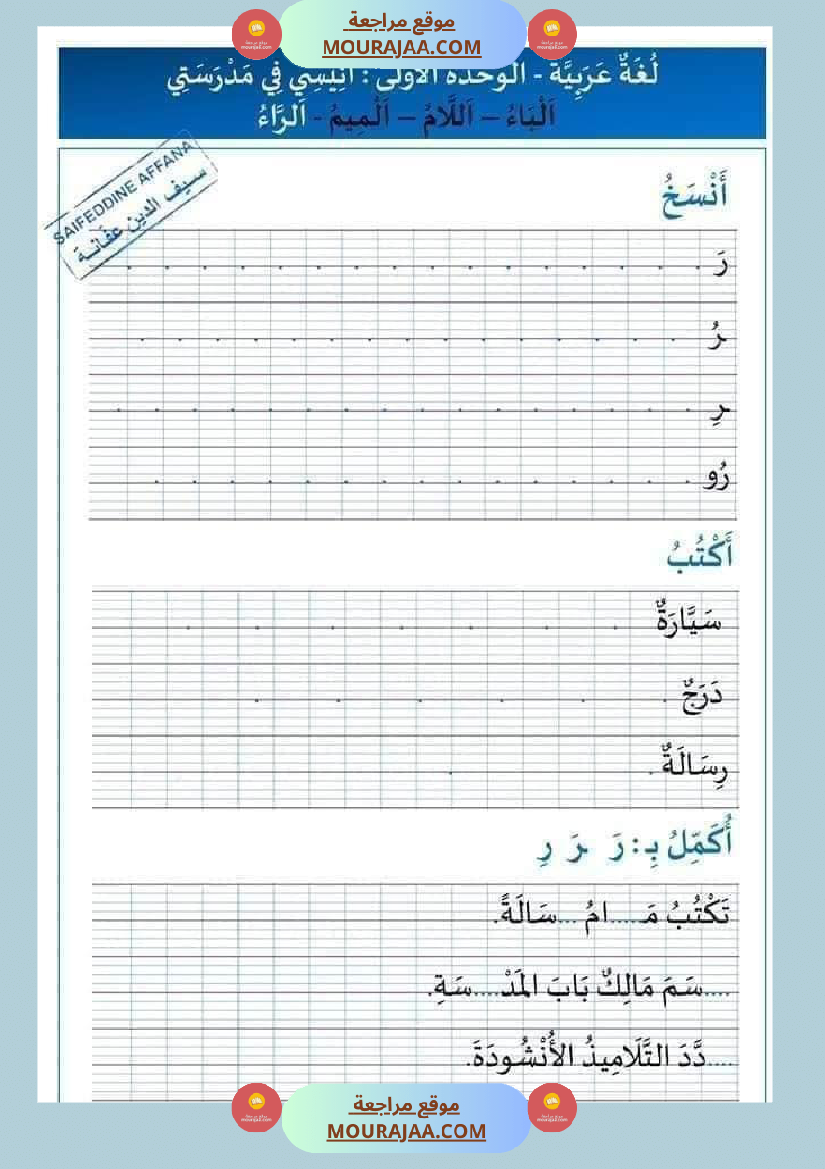 موقع مراجعة
MOURAJAA.COM
لُغَةٌ عَرَبِيَّة - الوحدة الأولى : أَنِيسِي فِي مَدْرَسَتِي
اَلْبَاءُ – اَللَّامُ – اَلْمِيمُ - اَلرَّاءُ
SAIFEDDINE AFFANA
سيف الدين عفانة
أَنْسَخُ
رَ
رُ
رِ
رُو
أَكْتُبُ
سَيَّارَةٌ
دَرَجٌ
رِسَالَةٌ
أُكَمِّلُ بِـ: رَ رَ رِ
تَكْتُبُ مَـ.....امُ ...سَالَةً.
....سَمَ مَالِكٌ بَابَ المَدْ....سَةِ.
....دَّدَ التَّلَامِيذُ الأُنْشُودَةَ.
موقع مراجعة
MOURAJAA.COM